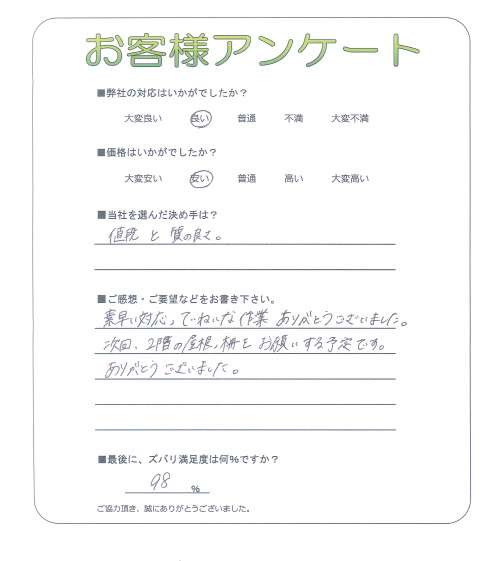 お客様アンケート
■弊社の対応はいかがでしたか？
大変良い 良い 普通 不満 大変不満
■価格はいかがでしたか？
大変安い 安い 普通 高い 大変高い
■当社を選んだ決め手は？
値段 と 質の良さ。
■ご感想・ご要望などをお書き下さい。
素早い対応、ていねいな作業 ありがとうございました。
次回、2階の屋根、樋を お願いする予定です。
ありがとう ございました。
■最後に、ズバリ満足度は何%ですか？
98 %
ご協力頂き、誠にありがとうございました。